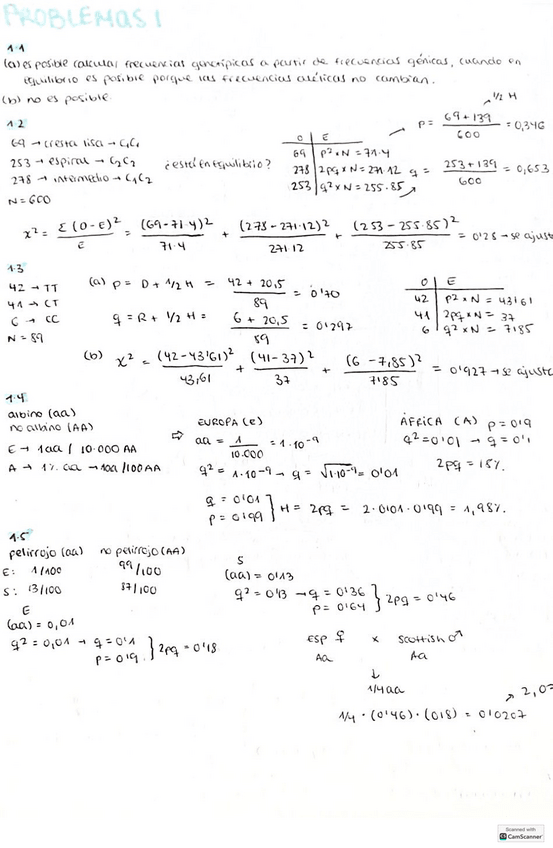 PROBLEMAS 1
1.1
(a) es posible calcular frecuencias genotípicas a partir de frecuencias génicas, cuando en
equilibrio es posible porque las frecuencias alélicas no cambian.
(b) no es posible
1.2
69 → cresta lisa → C₁C₁
253 → espiral → C₂C₂
278 → intermedio → C₁C₂
N = 600
¿está en equilibrio?
O | E
69 | p² × N = 71.4
278 | 2pq × N = 271.12
253 | q² × N = 255.85
1/2 H
p = (69 + 139) / 600 = 0,346
q = (253 + 139) / 600 = 0,653
x² = Σ(O-E)² / E = (69-71.4)² / 71.4 + (278-271.12)² / 271.12 + (253-255.85)² / 255.85 = 0'28 → se ajusta
1.3
42 → TT
41 → CT
6 → CC
N = 89
(a) p = D + 1/2 H = (42 + 20,5) / 89 = 0'70
q = R + 1/2 H = (6 + 20,5) / 89 = 0'297
O | E
42 | p² × N = 43'61
41 | 2pq × N = 37
6 | q² × N = 7'85
(b) x² = (42-43'61)² / 43,61 + (41-37)² / 37 + (6-7,85)² / 7'85 = 0'927 → se ajusta
1.4
albino (aa)
no albino (AA)
E → 1aa / 10.000 AA
A → 1% aa → 1aa / 100 AA
⇒ EUROPA (E)
aa = 1 / 10.000 = 1·10⁻⁴
q² = 1·10⁻⁴ → q = √1·10⁻⁴ = 0'01
q = 0'01
p = 0'99 } H = 2pq = 2·0'01·0'99 = 1,98%
ÁFRICA (A) p = 0'9
q² = 0'01 → q = 0'1
2pq = 18%
1.5
pelirrojo (aa) no pelirrojo (AA)
E: 1/100 99/100
S: 13/100 87/100
E
(aa) = 0,01
q² = 0,01 → q = 0'1
p = 0'9 } 2pq = 0'18
S
(aa) = 0'13
q² = 0'13 → q = 0'36
p = 0'64 } 2pq = 0'46
ESP ♀ × Scottish ♂
Aa Aa
↓
1/4 aa
1/4 · (0'46) · (0'18) = 0'0207
Scanned with
CamScanner